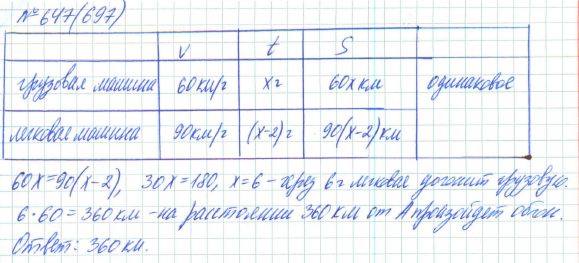 №647(697)
v t S
грузовая машина 60км/г xг 60x км одинаковое
легковая машина 90км/г (x-2)г 90(x-2)км
60x=90(x-2), 30x=180, x=6 - через 6г легковая догонит грузовую.
6·60=360км - на расстоянии 360км от А произойдет обгон.
Ответ: 360км.